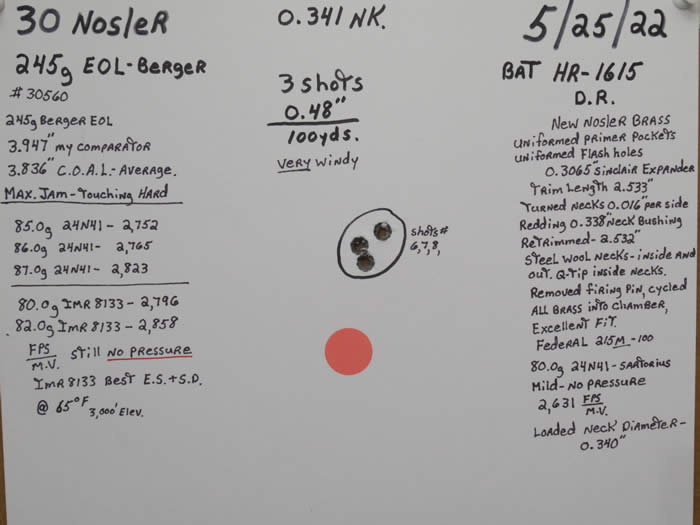 30 Nosler
245g EOL-Berger
# 30560
245g Berger EOL
3.947" my comparator
3.836" C.O.A.L.- Average.
Max. Jam - Touching Hard
85.0g 24N41 - 2,752
86.0g 24N41 - 2,765
87.0g 24N41 - 2,823
80.0g IMR 8133 - 2,796
82.0g IMR 8133 - 2,858
FPS
M.V. Still No Pressure
IMR 8133 Best E.S.+S.D.
@ 65°F 3,000' Elev.
0.341 NK.
3 shots
0.48"
100yds.
Very Windy
shots#
6,7,8,
5/25/22
BAT HR-1615
D.R.
New Nosler Brass
Uniformed Primer Pockets
Uniformed Flash holes
0.3065" Sinclair Expander
Trim Length 2.533"
Turned Necks 0.016" per side
Redding 0.338" Neck Bushing
Retrimmed - 2.532"
Steel Wool Necks - inside and
out. Q-Tip inside Necks.
Removed firing Pin, cycled
All Brass into Chamber,
Excellent Fit.
Federal 215M -100
80.0g 24N41 - Sartorius
Mild - No Pressure
2,631 FPS
M.V.
Loaded Neck Diameter -
0.340"